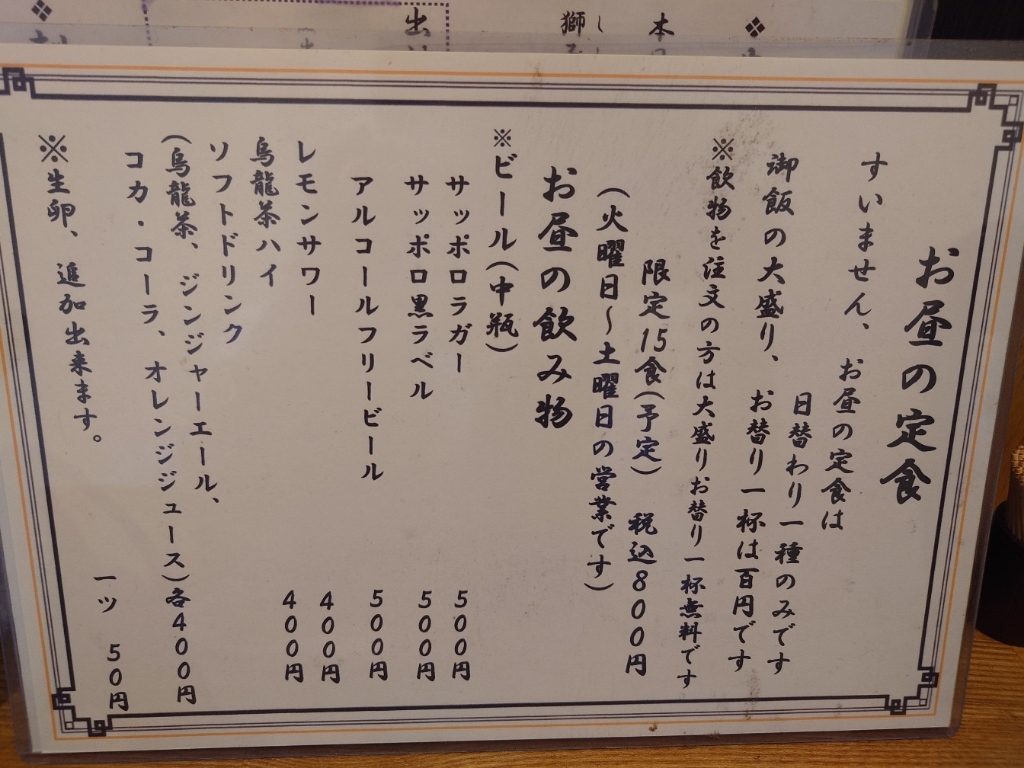 お昼の定食
すいません、お昼の定食は
日替わり一種のみです
御飯の大盛り、お替り一杯は百円です
※飲物を注文の方は大盛りお替り一杯無料です
限定15食(予定) 税込800円
(火曜日～土曜日の営業です)
お昼の飲み物
※ビール(中瓶)
サッポロラガー 500円
サッポロ黒ラベル 500円
アルコールフリービール 500円
レモンサワー 400円
烏龍茶ハイ 400円
ソフトドリンク
(烏龍茶、ジンジャーエール、
コカ・コーラ、オレンジジュース)各400円
※生卵、追加出来ます。
一ツ 50円